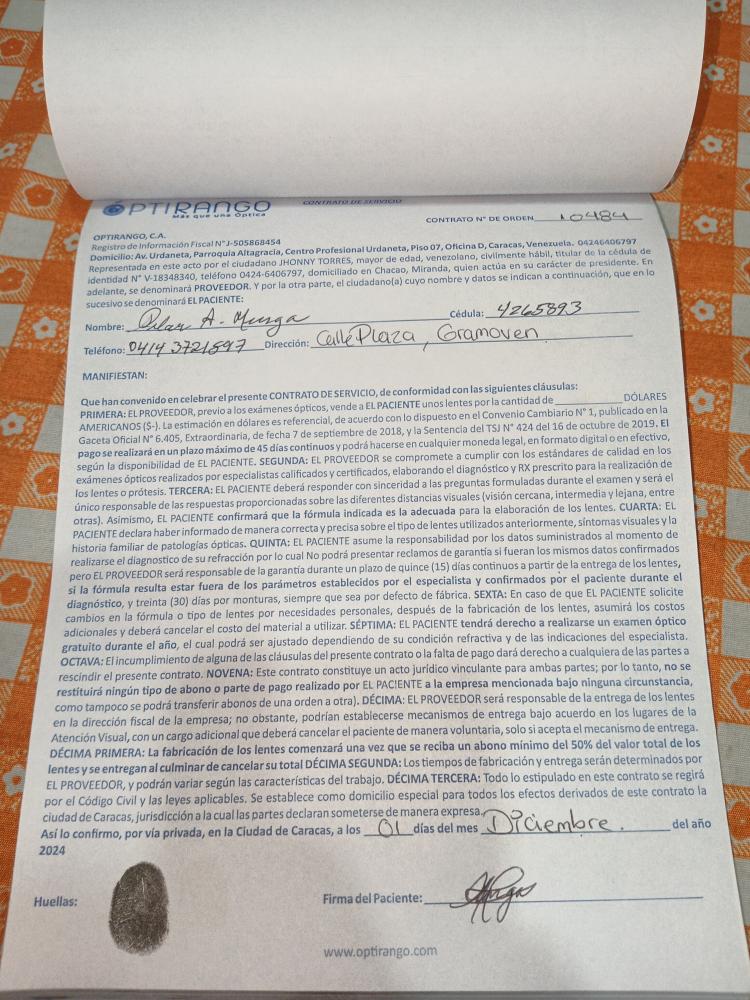 OPTIRANGO
Más que una Óptica
CONTRATO DE SERVICIO
CONTRATO N° DE ORDEN 10484
OPTIRANGO, C.A.
Registro de Información Fiscal N° J-505868454
Domicilio: Av. Urdaneta, Parroquia Altagracia, Centro Profesional Urdaneta, Piso 07, Oficina D, Caracas, Venezuela. 04246406797
Representada en este acto por el ciudadano JHONNY TORRES, mayor de edad, venezolano, civilmente hábil, titular de la cédula de
identidad N° V-18348340, teléfono 0424-6406797, domiciliado en Chacao, Miranda, quien actúa en su carácter de presidente. En
adelante, se denominará PROVEEDOR. Y por la otra parte, el ciudadano(a) cuyo nombre y datos se indican a continuación, que en lo
sucesivo se denominará EL PACIENTE:
Nombre: A. Cédula: 4265893
Teléfono: 0414 3721897 Dirección: Calle Plaza, Gramoven
MANIFIESTAN:
Que han convenido en celebrar el presente CONTRATO DE SERVICIO, de conformidad con las siguientes cláusulas:
PRIMERA: EL PROVEEDOR, previo a los exámenes ópticos, vende a EL PACIENTE unos lentes por la cantidad de ____________ DÓLARES
AMERICANOS ($-). La estimación en dólares es referencial, de acuerdo con lo dispuesto en el Convenio Cambiario N° 1, publicado en la
Gaceta Oficial N° 6.405, Extraordinaria, de fecha 7 de septiembre de 2018, y la Sentencia del TSJ N° 424 del 16 de octubre de 2019. El
pago se realizará en un plazo máximo de 45 días continuos y podrá hacerse en cualquier moneda legal, en formato digital o en efectivo,
según la disponibilidad de EL PACIENTE. SEGUNDA: EL PROVEEDOR se compromete a cumplir con los estándares de calidad en los
exámenes ópticos realizados por especialistas calificados y certificados, elaborando el diagnóstico y RX prescrito para la realización de
los lentes o prótesis. TERCERA: EL PACIENTE deberá responder con sinceridad a las preguntas formuladas durante el examen y será el
único responsable de las respuestas proporcionadas sobre las diferentes distancias visuales (visión cercana, intermedia y lejana, entre
otras). Asimismo, EL PACIENTE confirmará que la fórmula indicada es la adecuada para la elaboración de los lentes. CUARTA: EL
PACIENTE declara haber informado de manera correcta y precisa sobre el tipo de lentes utilizados anteriormente, síntomas visuales y la
historia familiar de patologías ópticas. QUINTA: EL PACIENTE asume la responsabilidad por los datos suministrados al momento de
realizarse el diagnostico de su refracción por lo cual No podrá presentar reclamos de garantía si fueran los mismos datos confirmados
pero EL PROVEEDOR será responsable de la garantía durante un plazo de quince (15) días continuos a partir de la entrega de los lentes,
si la fórmula resulta estar fuera de los parámetros establecidos por el especialista y confirmados por el paciente durante el
diagnóstico, y treinta (30) días por monturas, siempre que sea por defecto de fábrica. SEXTA: En caso de que EL PACIENTE solicite
cambios en la fórmula o tipo de lentes por necesidades personales, después de la fabricación de los lentes, asumirá los costos
adicionales y deberá cancelar el costo del material a utilizar. SÉPTIMA: EL PACIENTE tendrá derecho a realizarse un examen óptico
gratuito durante el año, el cual podrá ser ajustado dependiendo de su condición refractiva y de las indicaciones del especialista.
OCTAVA: El incumplimiento de alguna de las cláusulas del presente contrato o la falta de pago dará derecho a cualquiera de las partes a
rescindir el presente contrato. NOVENA: Este contrato constituye un acto jurídico vinculante para ambas partes; por lo tanto, no se
restituirá ningún tipo de abono o parte de pago realizado por EL PACIENTE a la empresa mencionada bajo ninguna circunstancia,
como tampoco se podrá transferir abonos de una orden a otra). DÉCIMA: EL PROVEEDOR será responsable de la entrega de los lentes
en la dirección fiscal de la empresa; no obstante, podrían establecerse mecanismos de entrega bajo acuerdo en los lugares de la
Atención Visual, con un cargo adicional que deberá cancelar el paciente de manera voluntaria, solo si acepta el mecanismo de entrega.
DÉCIMA PRIMERA: La fabricación de los lentes comenzará una vez que se reciba un abono mínimo del 50% del valor total de los
lentes y se entregan al culminar de cancelar su total DÉCIMA SEGUNDA: Los tiempos de fabricación y entrega serán determinados por
EL PROVEEDOR, y podrán variar según las características del trabajo. DÉCIMA TERCERA: Todo lo estipulado en este contrato se regirá
por el Código Civil y las leyes aplicables. Se establece como domicilio especial para todos los efectos derivados de este contrato la
ciudad de Caracas, jurisdicción a la cual las partes declaran someterse de manera expresa.
Así lo confirmo, por vía privada, en la Ciudad de Caracas, a los 01 días del mes Diciembre. del año
2024
Huellas:
Firma del Paciente:
www.optirango.com